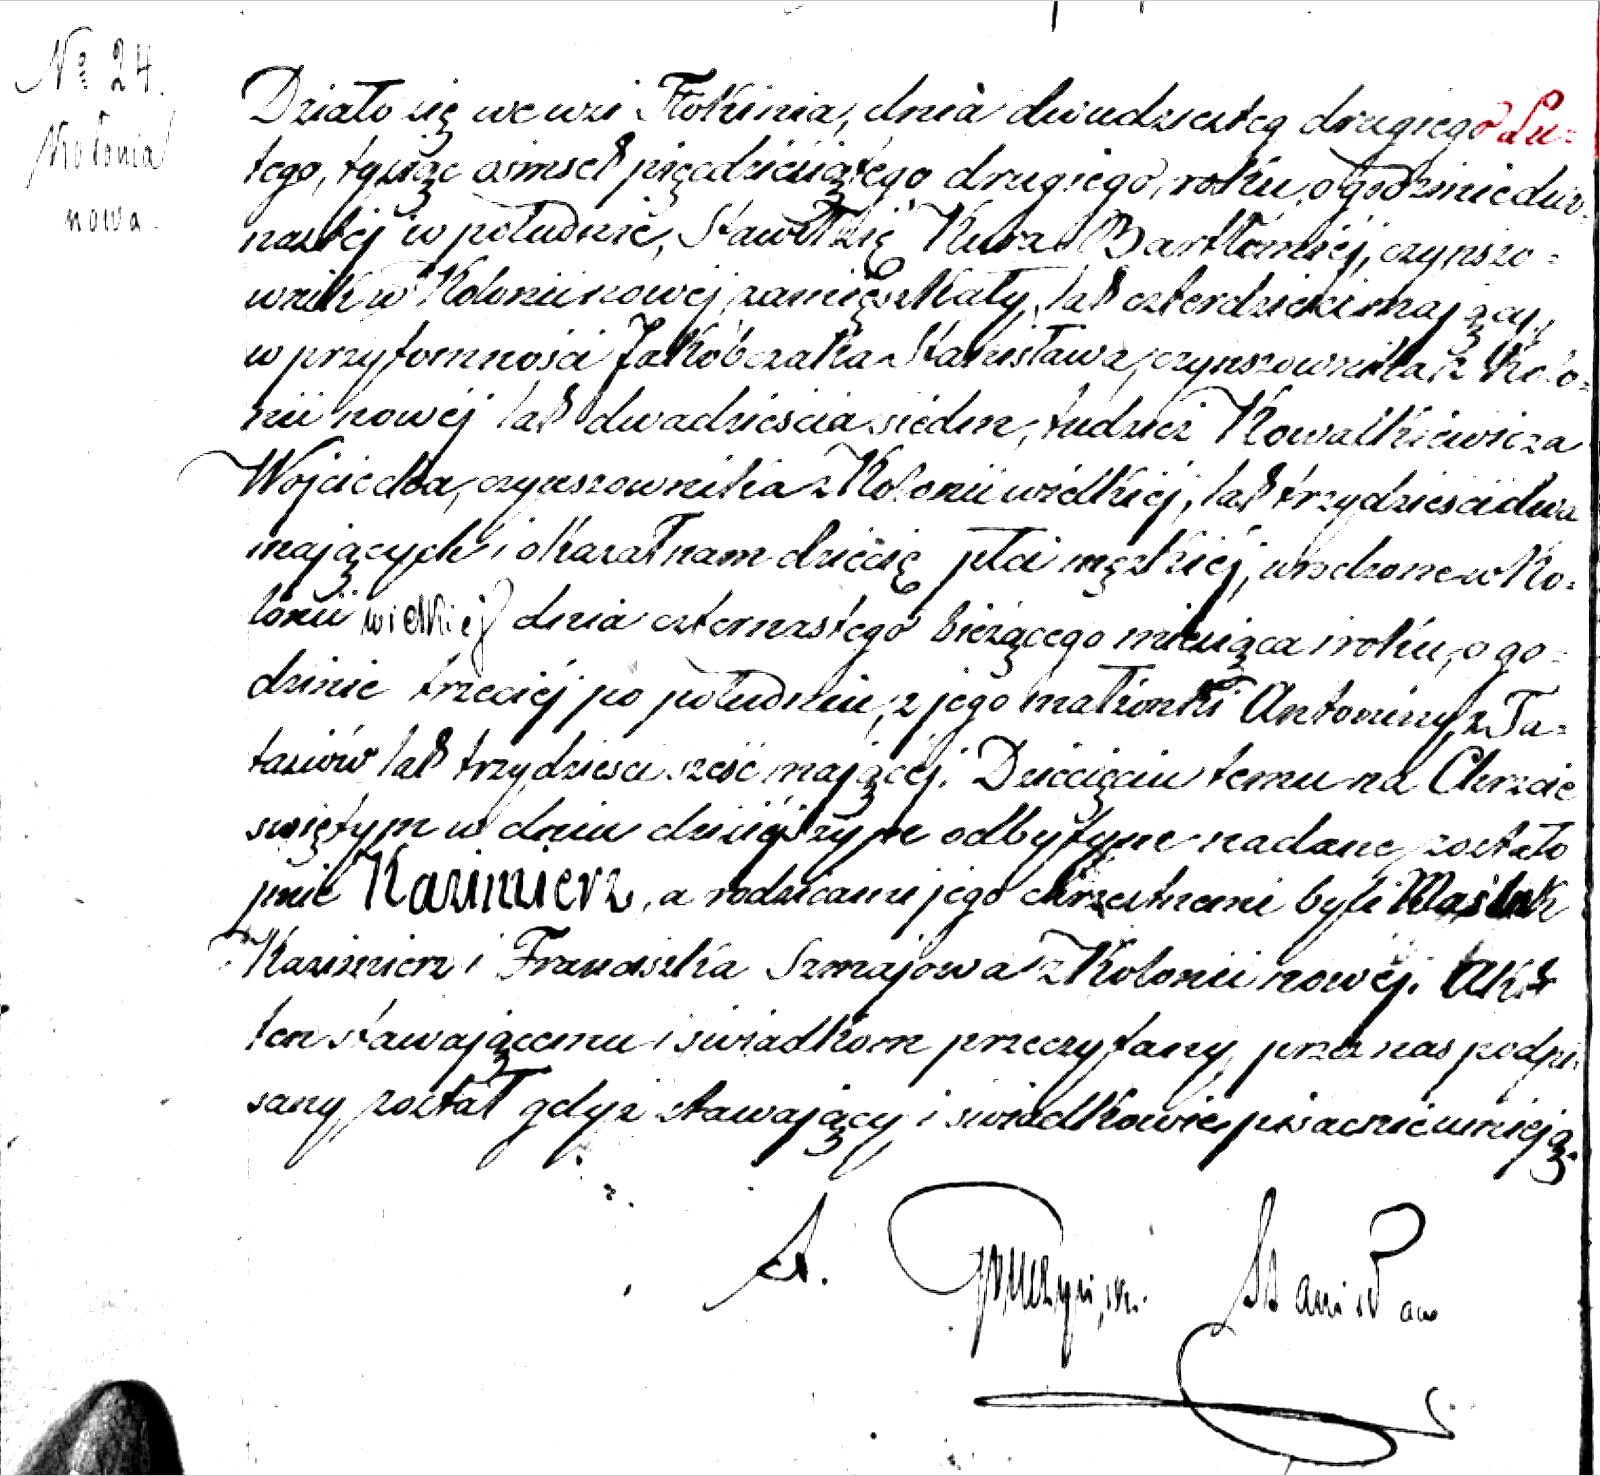 № 24.
Kolonia
nowa.
Działo się we wsi Tłokinia, dnia dwudziestego drugiego Lu=
tego, tysiąc ośmset pięćdziesiątego drugiego, roku, o godzinie dwu=
nastej w południe, Stawił się Kura Bartłomiéj, czynszo=
wnik w Kolonii nowéj zamieszkały, lat czterdzieści mający,
w przytomności Jakóbczaka Stanisława, czynszownika z Kolo=
nii nowéj lat dwadzieścia siédm, tudzież Kowalkiewicza
Wojciecha, czynszownika z Kolonii wielkiéj, lat trzydzieści dwa
mających i okazał nam dziécię płci męzkiéj, urodzone w Ko=
lonii wielkiej dnia czternastego bieżącego miesiąca i roku, o go=
dzinie trzeciéj po południu, z jego małżonki Antoniny z Ta=
tasiów lat trzydzieści sześć mającéj. Dziecięciu temu na Chrzcie
świętym w dniu dzisiéjszym odbytym nadane zostało
imie Kazimierz, a rodzicami jego chrzestnemi byli Maślak
Kazimierz i Franciszka Szmajowa z Kolonii nowéj. Akt
ten stawającemu i świadkom przeczytany, przez nas podpi=
sany został gdyż stawający i świadkowie pisać nie umieją.
Stanisław